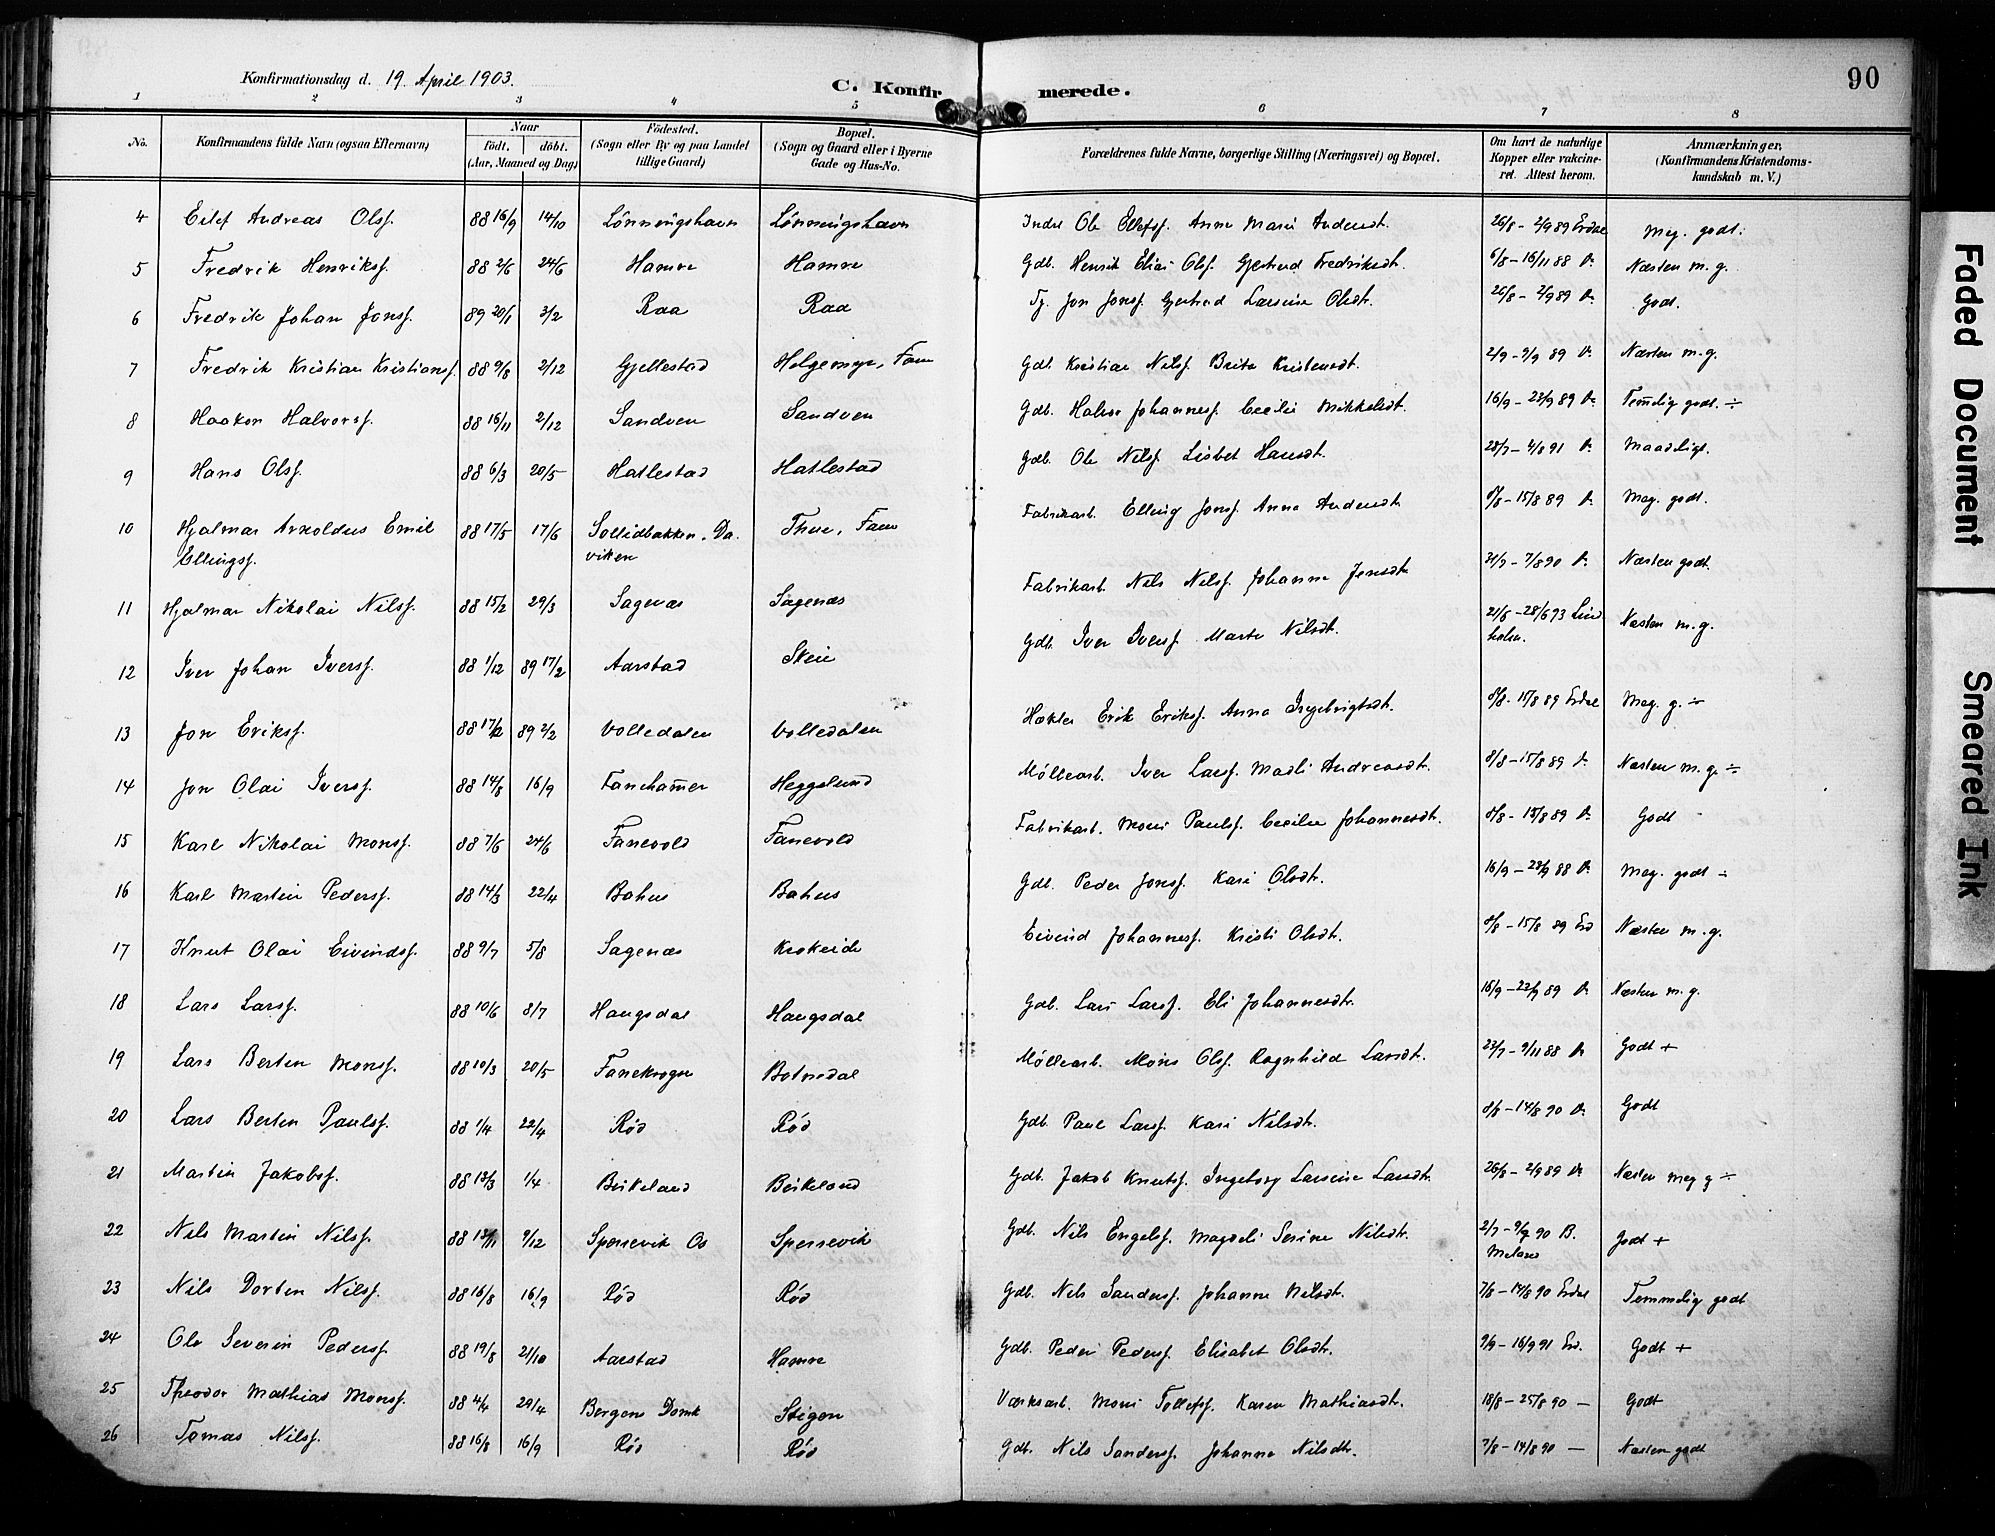 90
Konfirmationsdag d. 19. April 1903.
C. Konfirmerede.
1 2 3 4 5 6 7 8
No. Konfirmandens fulde Navn (ogsaa Efternavn) Naar födt. döbt. (Aar, Maaned og Dag) Födested. (Sogn eller By og paa Landet tillige Gaard) Bopæl. (Sogn og Gaard eller i Byerne Gade og Hus-No. Forældrenes fulde Navne, borgerlige Stilling (Næringsvei) og Bopæl. Om havt de naturlige Kopper eller vakcineret. Attest herom. Anmærkninger. (Konfirmandens Kristendomskundskab m. V.)
4 Eilef Andreas Olsf. 88 16/9 14/10 Lönningshavn Lönningshavn Inderst Ole Ellefsf. Anna Marie Andersdt. 26/8 - 2/9 89 Erdal Meg. godt.
5 Fredrik Henriksf. 88 2/6 24/6 Hamre Hamre Gdb. Henrik Elias Olsf. Gjertrud Fredriksdt. 6/8 - 16/11 88 Do Næsten m. g.
6 Fredrik Johan Jonsf. 89 20/1 3/2 Raa Raa Tj. Jon Jonsf. Gjertrud Larsine Olsdt. 26/8 - 2/9 89 Do Godt.
7 Fredrik Kristian Kristiansf. 88 9/8 2/12 Gjellestad Helgemyr, Fane Gdb. Kristian Nilsf. Brita Kristensdt. 2/9 - 9/9 89 Do Næsten m. g.
8 Haakon Halvorsf. 88 16/11 2/12 Sandven Sandven Gdb. Halvor Johannesf. Cecilie Mikkelsdt. 16/9 - 23/9 89 Do Temmelig godt. ÷
9 Hans Olsf. 88 6/3 20/5 Hatlestad Hatlestad Gdb. Ole Nilsf. Lisbet Hansdt. 28/7 - 4/8 91 Do Maadeligt.
10 Hjalmar Arnoldus Emil Ellingsf. 88 17/5 17/6 Sollidbakken, Daviken Thue, Fane Fabrikarb. Elling Jonsf. Anna Andersdt. 8/8 - 15/8 89 Do Meg. godt.
11 Hjalmar Nikolai Nilsf. 88 15/2 29/3 Sagenæs Sagenæs Fabrikarb. Nils Nilsf. Johanna Jensdt. 31/7 - 7/8 90 Do Næsten godt.
12 Iver Johan Iversf. 88 1/12 89 17/2 Aarstad Skeie Gdb. Iver Iversf. Marta Nilsdt. 21/6 - 28/6 93 Lindholm. Næsten m. g.
13 Jon Eriksf. 88 17/12 89 2/2 Volledalen Volledalen Hækler Erik Eriksf. Anna Ingebrigtsdt. 8/8 - 15/8 89 Erdal Meg. g. ÷
14 Jon Olai Iversf. 88 14/8 16/9 Fanehammer Heggelund Möllearb. Iver Larsf. Madli Andreasdt. 8/8 - 15/8 89 Do Næsten m. g. ÷
15 Karl Nikolai Monsf. 88 7/6 24/6 Fanevold Fanevold Fabrikarb. Mons Paulsf. Cecilie Johannesdt. 8/8 - 15/8 89 Do Godt
16 Karl Martin Pedersf. 88 14/3 22/4 Bahus Bahus Gdb. Peder Jonsf. Kari Olsdt. 16/9 - 23/9 88 Do Meg. godt ÷
17 Knut Olai Eivindsf. 88 9/7 5/8 Sagenæs Krokeide Eivind Johannesf. Kristi Olsdt. 8/8 - 15/8 89 Erd Næsten m. g.
18 Lars Larsf. 88 10/6 8/7 Haugsdal Haugsdal Gdb. Lars Larsf. Eli Johannesdt. 16/9 - 23/9 89 Do Næsten m. g.
19 Lars Bertin Monsf. 88 10/3 20/5 Fanekrogen Botnedal Möllearb. Mons Olsf. Ragnhild Larsdt. 23/7 - 9/11 88 Do Godt +
20 Lars Bertin Paulsf. 88 1/4 22/4 Röd Röd Gdb. Paul Larsf. Kari Nilsdt. 8/8 - 14/8 90 Do Godt
21 Martin Jakobsf. 88 13/3 1/4 Birkeland Birkeland Gdb. Jakob Knutsf. Ingeborg Larsine Larsdt. 26/8 - 2/9 89 Do Næsten meg g ÷
22 Nils Martin Nilsf. 9/12 Sperrevik Os Sperrevik Gdb. Nils Engelsf. Magdeli Serine Nilsdt. Godt +
23 Nils Dorten Nilsf. 88 16/8 16/9 Röd Röd Gdb. Nils Sandersf. Johanna Nilsdt. 7/8 - 14/8 90 Erdal Temmelig godt
24 Ole Severin Pedersf. 88 19/8 21/10 Aarstad Hamre Gdb. Peder Pedersf. Elisabet Olsdt. 9/9 - 16/9 91 Erd. Godt +
25 Theodor Mathias Monsf. 88 4/4 29/4 Bergens Domk Stigen Værksarb. Mons Tollefsf. Karen Mathiasdt. 18/8 - 25/8 90 — Godt
26 Tomas Nilsf. 88 16/8 16/9 Röd Röd Gdb. Nils Sandersf. Johanna Nilsdt. 7/8 - 14/8 90 — Næsten godt
Faded Document
Smeared Ink